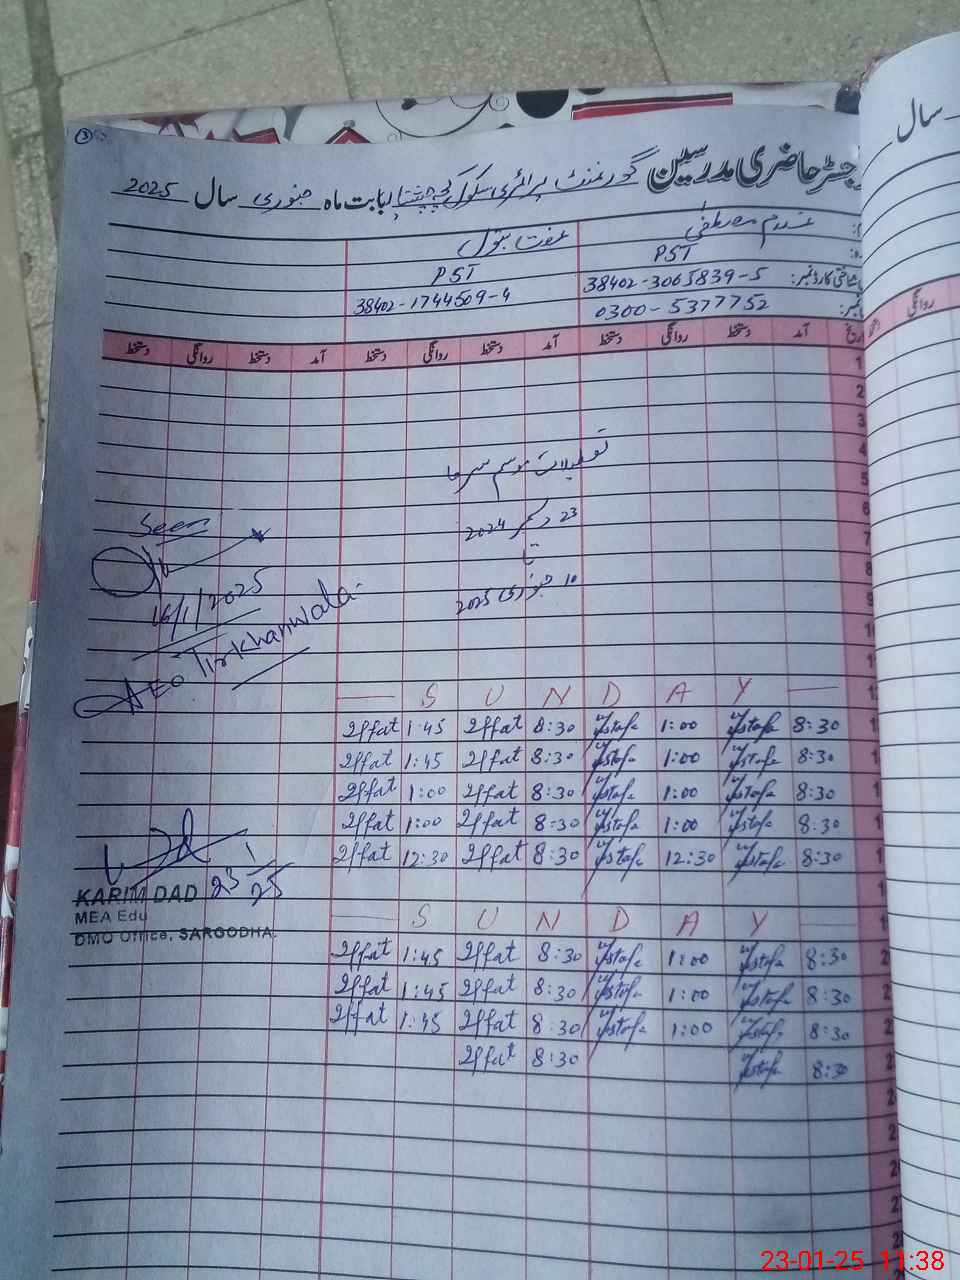 رجسٹر حاضری مدرسین گورنمنٹ پرائمری سکول بابت ماہ جنوری سال 2025
سال
مصطفیٰ
عفت بتول
PST
PST
شناختی کارڈ نمبر: 38402-3065839-5
38402-1744509-4
0300-5377752
تاریخ آمد دستخط روانگی دستخط آمد دستخط روانگی دستخط آمد دستخط روانگی دستخط
روانگی
1
2
3
4
5
6
7
8
9
تعطیلات موسم سرما
23 دسمبر 2024
تا
10 جنوری 2025
Seen
16/1/2025
AEO Tirkhanwala
S U N D A Y
Iffat 1:45 Iffat 8:30 Mustafa 1:00 Mustafa 8:30
Iffat 1:45 Iffat 8:30 Mustafa 1:00 Mustafa 8:30
Iffat 1:00 Iffat 8:30 Mustafa 1:00 Mustafa 8:30
Iffat 1:00 Iffat 8:30 Mustafa 1:00 Mustafa 8:30
Iffat 12:30 Iffat 8:30 Mustafa 12:30 Mustafa 8:30
S U N D A Y
Iffat 1:45 Iffat 8:30 Mustafa 1:00 Mustafa 8:30
Iffat 1:45 Iffat 8:30 Mustafa 1:00 Mustafa 8:30
Iffat 1:45 Iffat 8:30 Mustafa 1:00 Mustafa 8:30
Iffat 8:30 Mustafa 8:30
23/1/25
KARIM DAD
MEA Edu
DMO Office, SARGODHA.
23-01-25 11:38